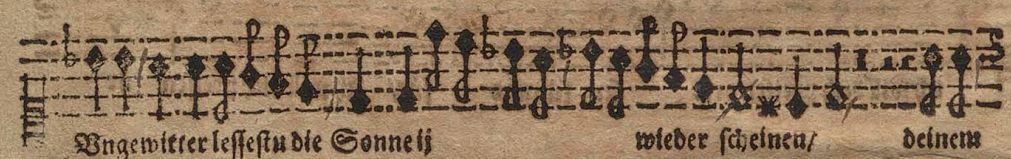 Vngewitter lessestu die Sonne ij wieder scheinen/ deinem